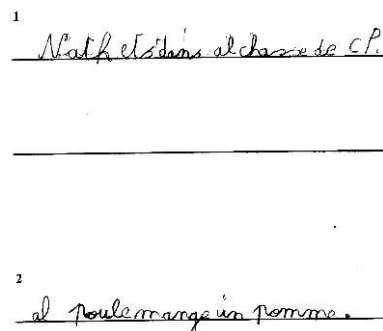 1
Nath ets dans al chase de CP.
2
al poule mange un pomme.